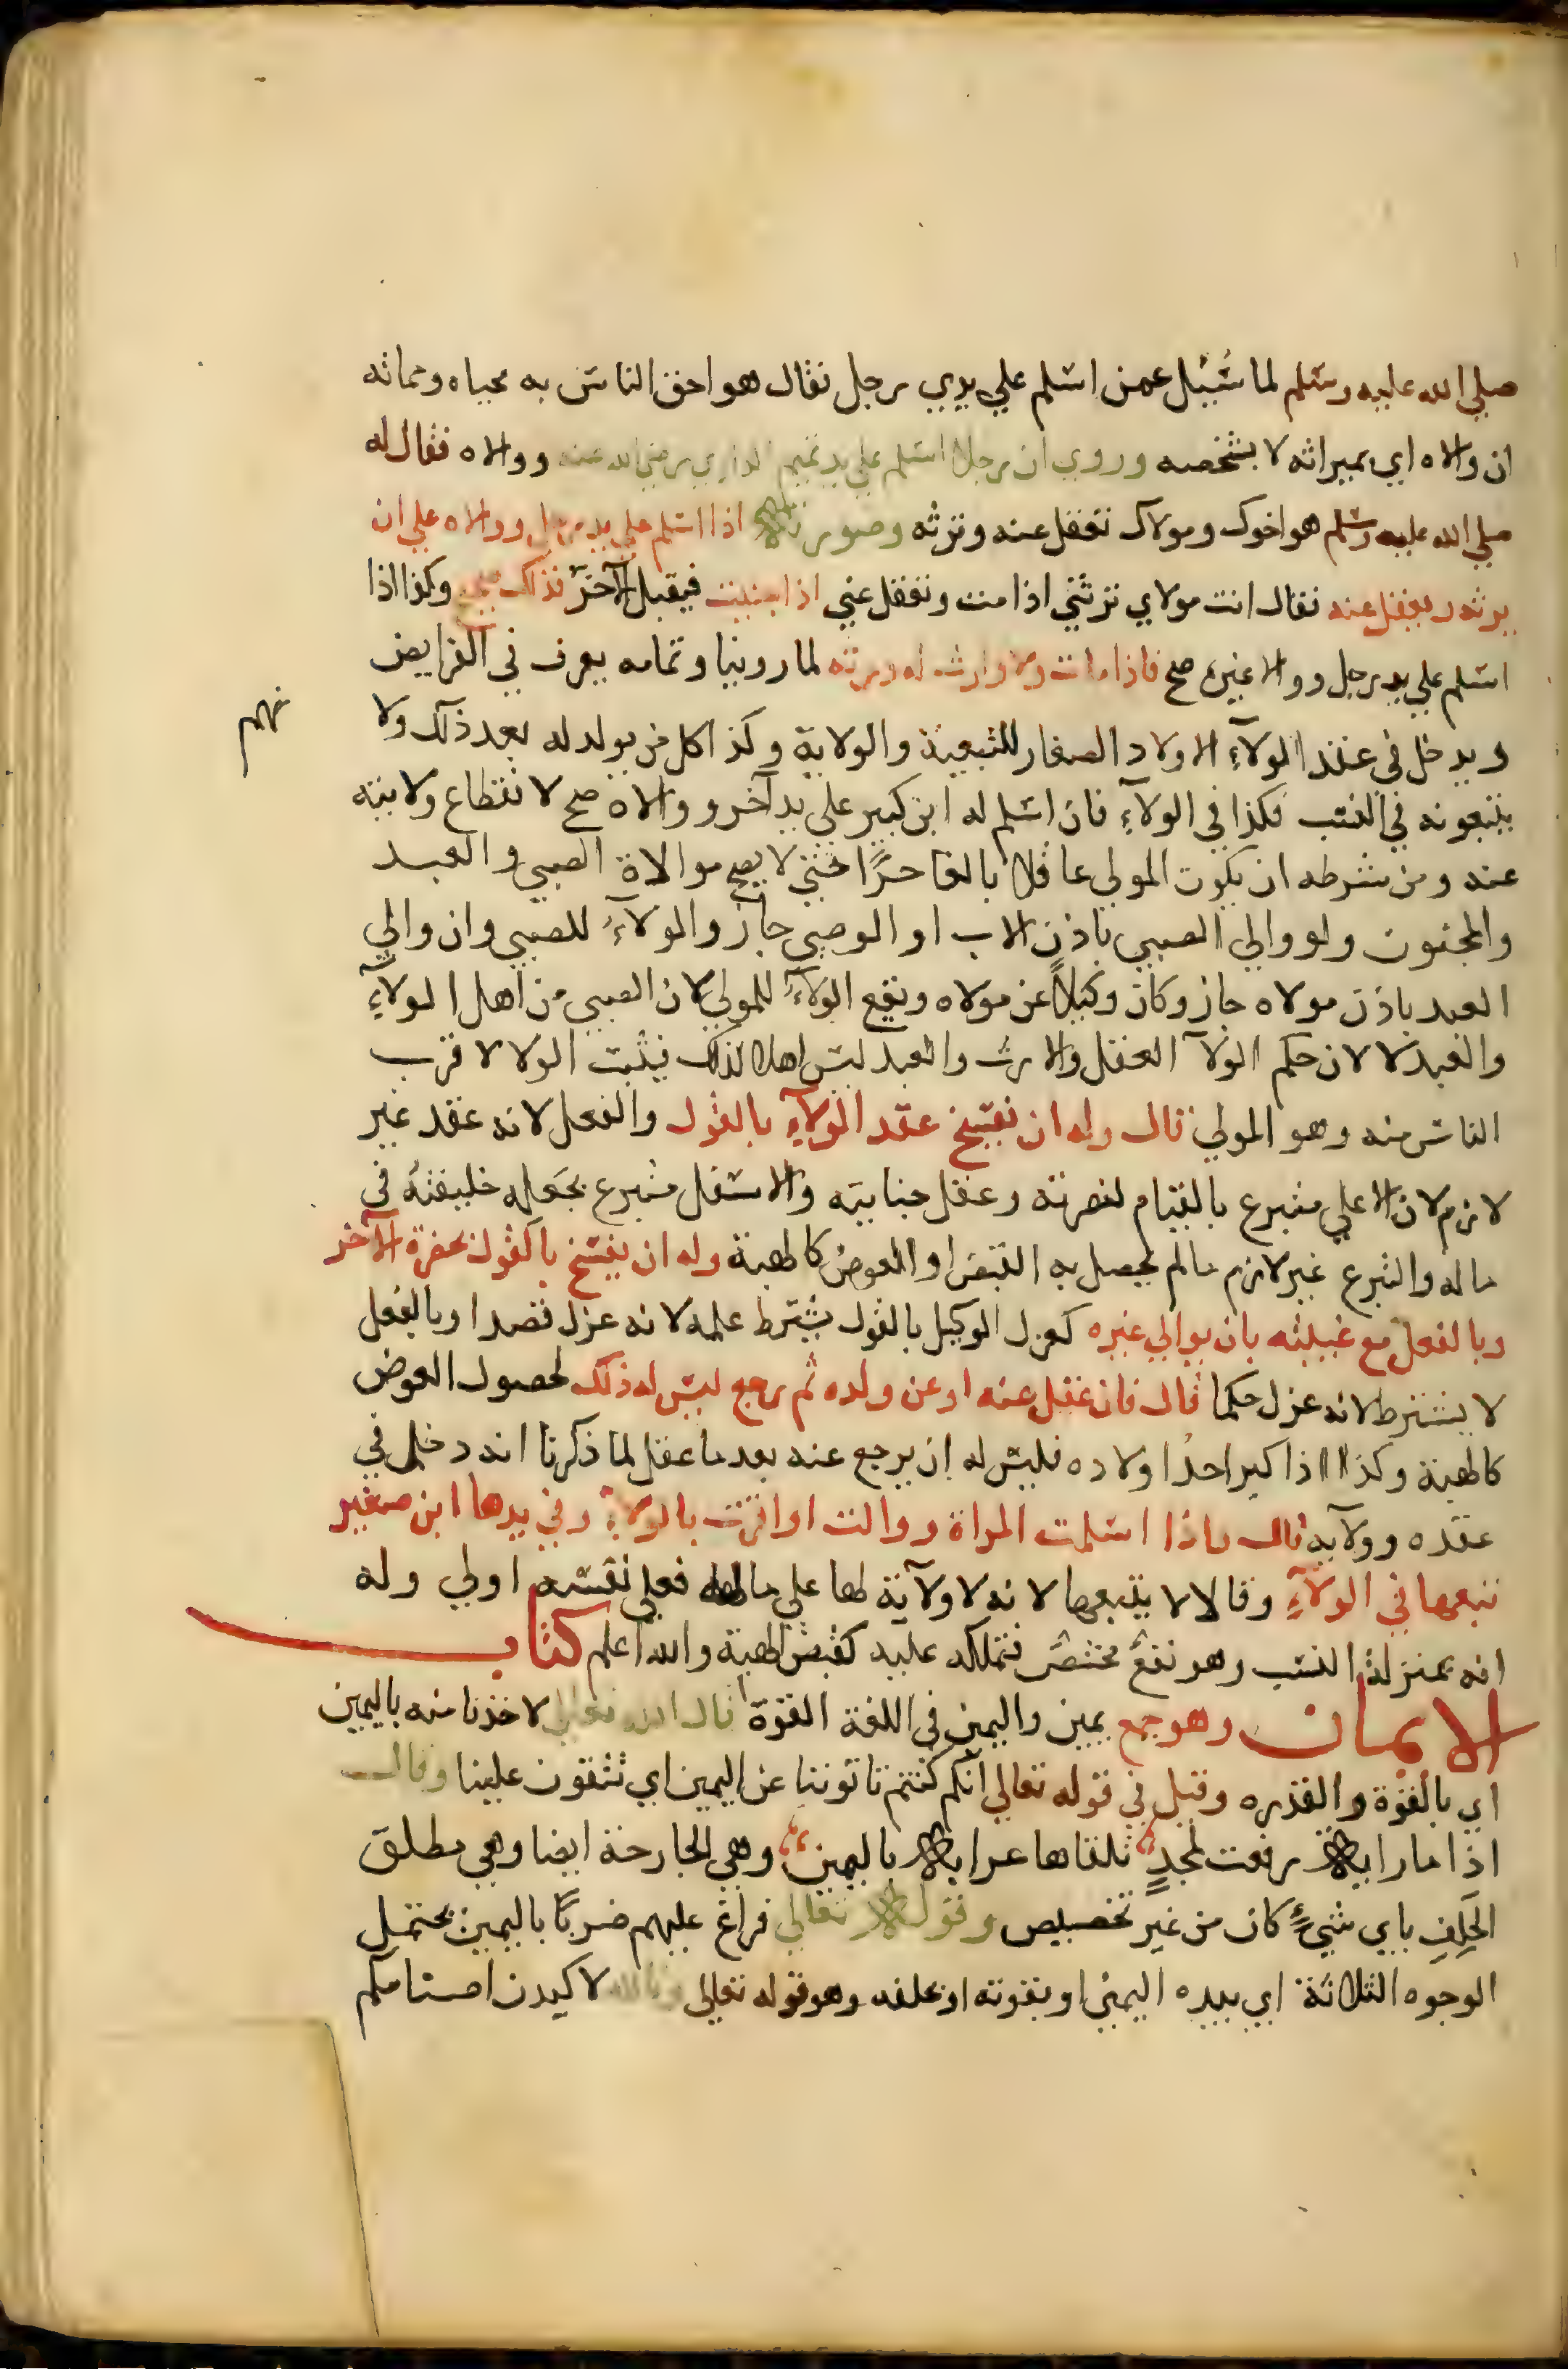 صلي الله عليه وسلم لما سُئِل عمن اسلم علي يدي رجل فقال هو احق الناس به محياه ومماته
ان والاه اي بميراثه لا بشخصه وروي ان رجلا اسلم علي يد تميم الداري رضي الله عنه ووالاه فقال له
صلي الله عليه وسلم هو اخوك ومولاك تعقل عنه وترثه وصورته اذا اسلم علي يد رجل ووالاه علي ان
يرثه ويعقل عنه فقال انت مولاي ترثني اذا مت وتعقل عني اذا جنيت فيقبل الآخر فذلك صحيح وكذا اذا
اسلم علي يد رجل ووالا غيره صح فاذا مات ولا وارث له ورثه لما روينا وتمامه يعرف في الفرايض
ويدخل في عقد الولآءِ الاولاد الصغار للتبعية والولاية وكذا كل من يولد له بعد ذلك ولا
يتبعونه في النسب فكذا في الولآءِ فان اسلم له ابن كبير علي يد آخر ووالاه صح لانقطاع ولايته
عنه ومن شرطه ان يكون المولي عاقلا بالغا حرًا حتي لا يصح موالاة الصبي والعبد
والمجنون ولو والي الصبي باذن الاب او الوصي جاز والولآءُ للصبي وان والي
العبد باذن مولاه جاز وكان وكيلاً عن مولاه ويقع الولآءُ للمولي لان الصبي من اهل الولآءِ
والعبد لا لان حكم الولآ العقل والارث والعبد ليس اهلا لذلك فيثبت الولا لاقرب
الناس منه وهو المولي قال وله ان يفسخ عقد الولآءِ بالقول والفعل لانه عقد غير
لازم لان الاعلي متبرع بالقيام لنصرته وعقل جنايته والاسفل متبرع بجعله خليفته في
ماله والتبرع غير لازم مالم يحصل به القبض او العوض كالهبة وله ان يفسخ بالقول بحضرة الآخر
وبالفعل مع غيبته بان يوالي غيره كعزل الوكيل بالقول يشترط علمه لانه عزل قصدا وبالفعل
لا يشترط لانه عزل حكما قال فان عقل عنه او عن ولده ثم رجع ليس له ذلك لحصول العوض
كالهبة وكذا اذا كبر احدُ اولاده فليس له ان يرجع عنه بعد ما عقل لما ذكرنا انه دخل في
عقده وولآيه قال واذا اسلمت المراة ووالت او اقرت بالولآءِ وفي يدها ابن صغير
تبعها في الولآءِ وقالا لا يتبعها لانه لا ولآية لها علي ماله فعلي نفسه اولي وله
انه بمنزلة النسب وهو نفعٌ محضٌ فتملكه عليه كقبض الهبة والله اعلم كتاب
الايمان وهو جمع يمين واليمين في اللغة القوة قال الله تعالي لاخذنا منه باليمين
اي بالقوة والقدره وقيل في قوله تعالي انكم كنتم تاتوننا عن اليمين اي تتقوون علينا وقال
اذا ما راية رفعت لمجدٍ تلقاها عرابة باليمين وهي الجارحة ايضا وهي مطلق
الحَلِفِ باي شيءٍ كان من غير تخصيص وقوله تعالي فراغ عليهم ضربًا باليمين يحتمل
الوجوه الثلاثة اي بيده اليمني او بقوته او بحلفه وهو قوله تعالي وتالله لاكيدن اصنامكم